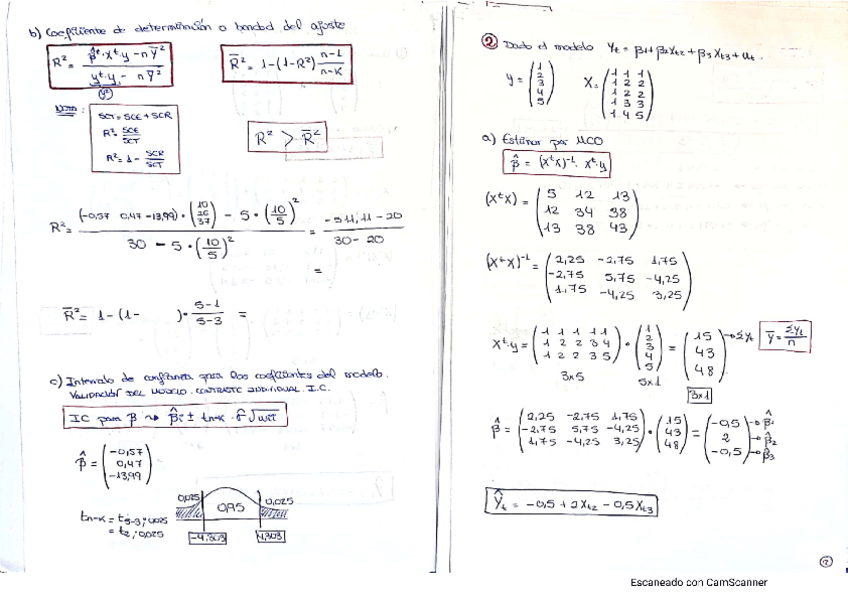 b) Coeficiente de determinación o bondad del ajuste
R² = (β̂ᵗ·Xᵗ·y - nȲ²) / (yᵗ·y - nȲ²)
R̄² = 1-(1-R²) (n-1)/(n-K)
(y²)
Nota:
SCT = SCE + SCR
R² = SCE/SCT
R² = 1 - SCR/SCT
R² > R̄²
R² = ((-0,57 0,47 -13,99)·(10 26 37) - 5·(10/5)²) / (30 - 5·(10/5)²) = (-511,11 - 20) / (30 - 20)
=
R̄² = 1-(1- )· (5-1)/(5-3) =
c) Intervalo de confianza para los coeficientes del modelo.
VALIDACIÓN DEL MODELO. CONTRASTE INDIVIDUAL. I.C.
IC para β ⇝ β̂i ± tn-k · σ̂ √wii
β̂ = (-0,57 0,47 -13,99)
0,025 0,95 0,025
tn-k = t5-3; 0,025
= t2; 0,025
-4,303 4,303
2 Dado el modelo Yt = β1 + β2Xt2 + β3Xt3 + ut.
y = (1 2 3 4 5) X = (1 1 1
1 2 2
1 2 2
1 3 3
1 4 5)
a) Estimar por MCO
β̂ = (XᵗX)⁻¹ · Xᵗy
(XᵗX) = (5 12 13
12 34 38
13 38 43)
(XᵗX)⁻¹ = (2,25 -2,75 1,75
-2,75 5,75 -4,25
1,75 -4,25 3,25)
Xᵗ·y = (1 1 1 1 1
1 2 2 3 4
1 2 2 3 5) · (1 2 3 4 5) = (15 43 48) → Σyt Ȳ = ΣYt/n
3x5 5x1 3x1
β̂ = (2,25 -2,75 1,75
-2,75 5,75 -4,25
1,75 -4,25 3,25) · (15 43 48) = (-0,5 2 -0,5) → β̂1 → β̂2 → β̂3
Ŷt = -0,5 + 2Xt2 - 0,5Xt3
Escaneado con CamScanner